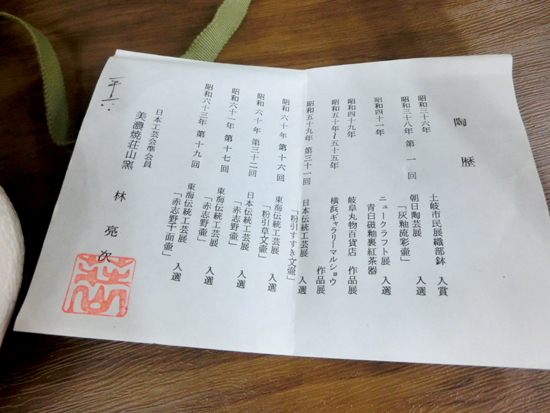 陶歴
昭和三十六年 土岐市民展織部鉢 入賞
昭和三十八年 第一回 朝日陶芸展 入選
「灰釉流彩壷」
昭和四十一年 ニュークラフト展 入選
青白磁釉裏紅茶器
昭和四十九年 岐阜丸物百貨店 作品展
昭和五十年〜五十五年 横浜ギャラリーマルショウ 作品展
昭和五十九年 第三十一回 日本伝統工芸展 入選
「粉引すすき文壷」
昭和六十年 第十六回 東海伝統工芸展 入選
「粉引草文壷」
昭和六十年 第三十二回 日本伝統工芸展 入選
「赤志野壷」
昭和六十一年 第十七回 東海伝統工芸展 入選
「赤志野壷」
昭和六十三年 第十九回 東海伝統工芸展 入選
「赤志野千面壷」
日本工芸会準会員
美濃焼荘山窯 林亮次